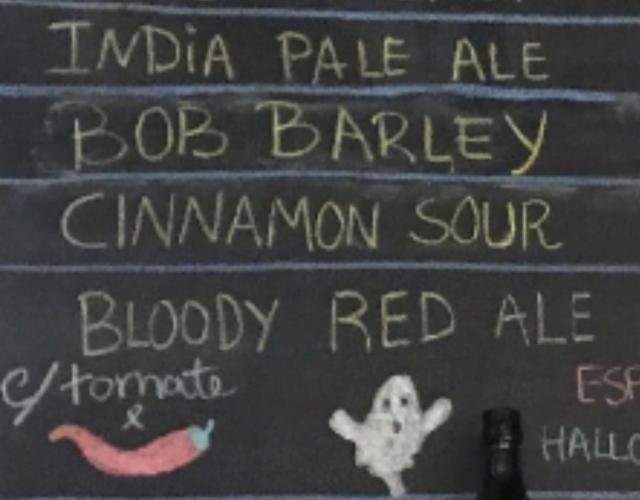 INDiA PALE ALE
BOB BARLEY
CINNAMON SOUR
BLOODY RED ALE
c/tomate
&